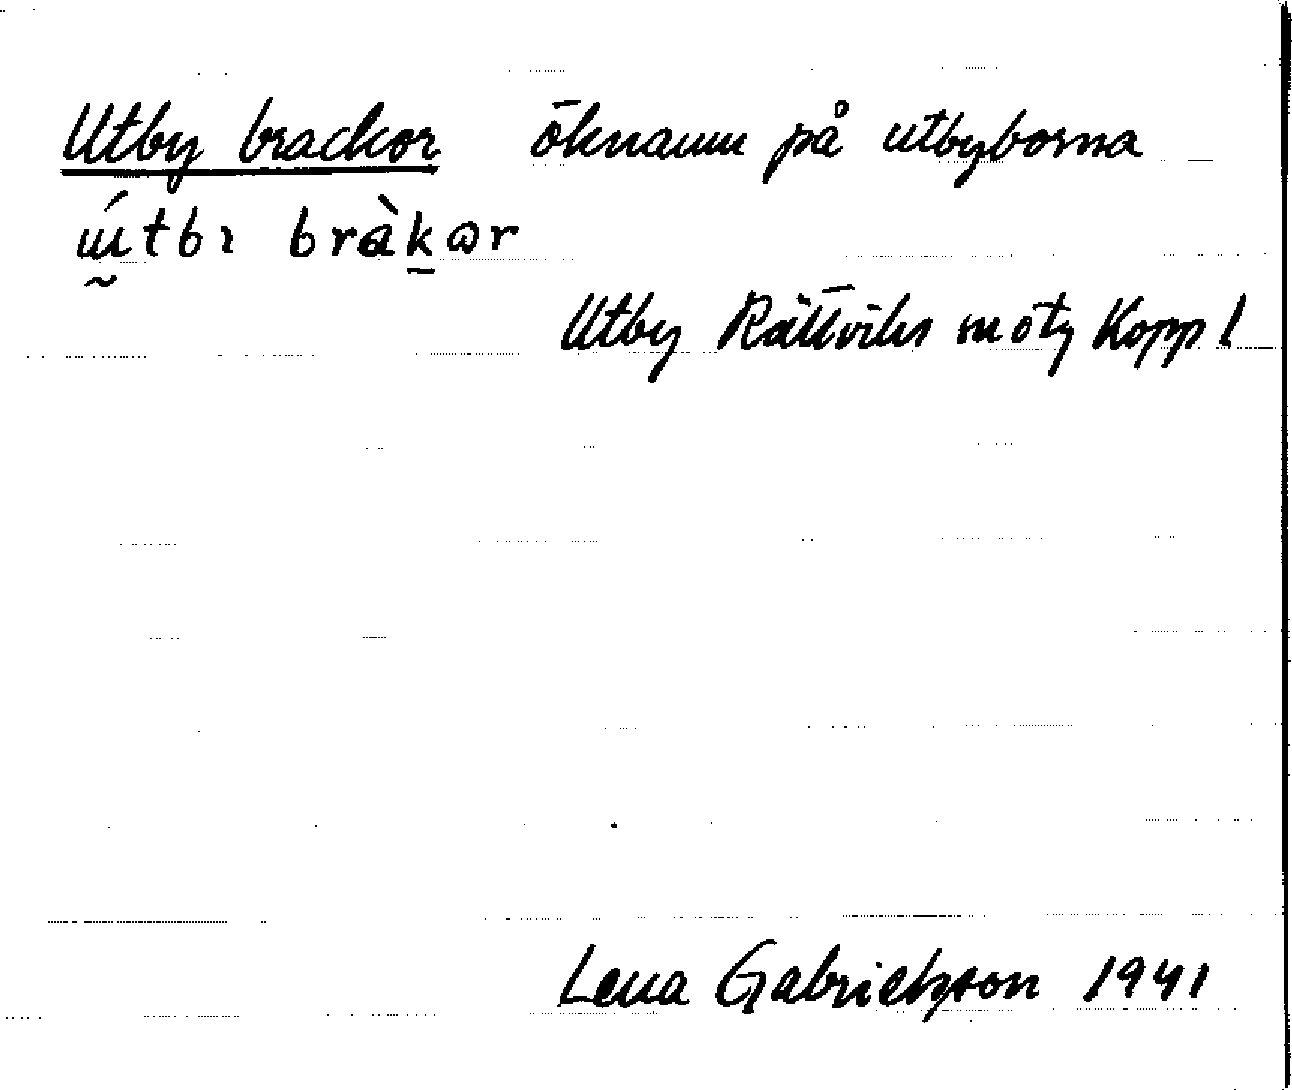 Utby brackor öknamn på utbyborna
ɯ́tbı bràkɷr
Utby Rättviks m o ty Kopp l
Lena Gabrielsson 1941